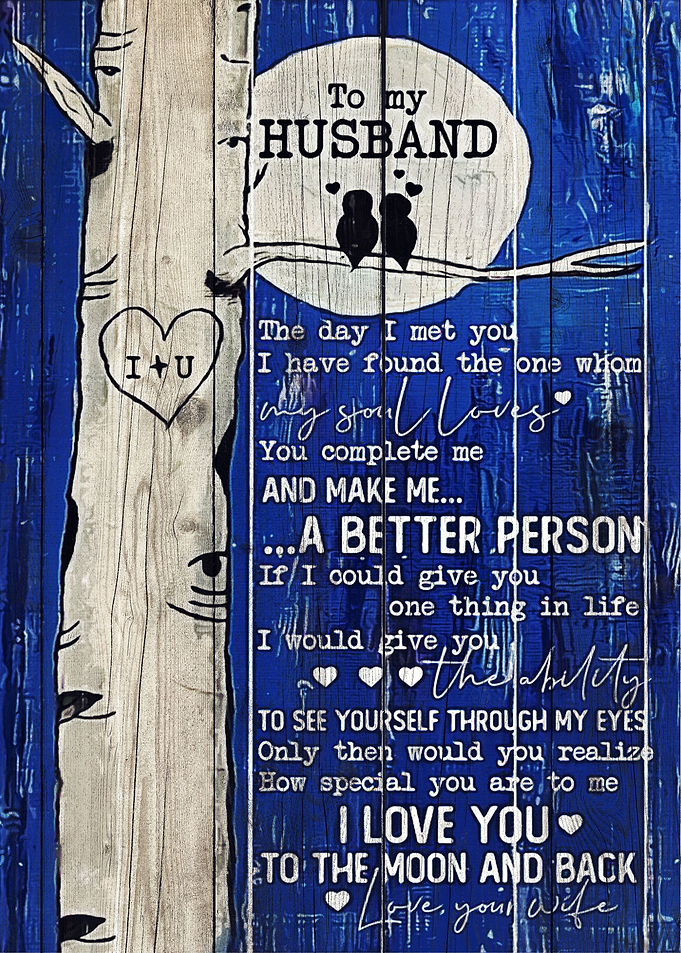 To my
HUSBAND
I + U
The day I met you
I have found the one whom
my soul loves
You complete me
AND MAKE ME...
...A BETTER PERSON
If I could give you
one thing in life
I would give you
the ability
TO SEE YOURSELF THROUGH MY EYES
Only then would you realize
How special you are to me
I LOVE YOU
TO THE MOON AND BACK
Love, your wife